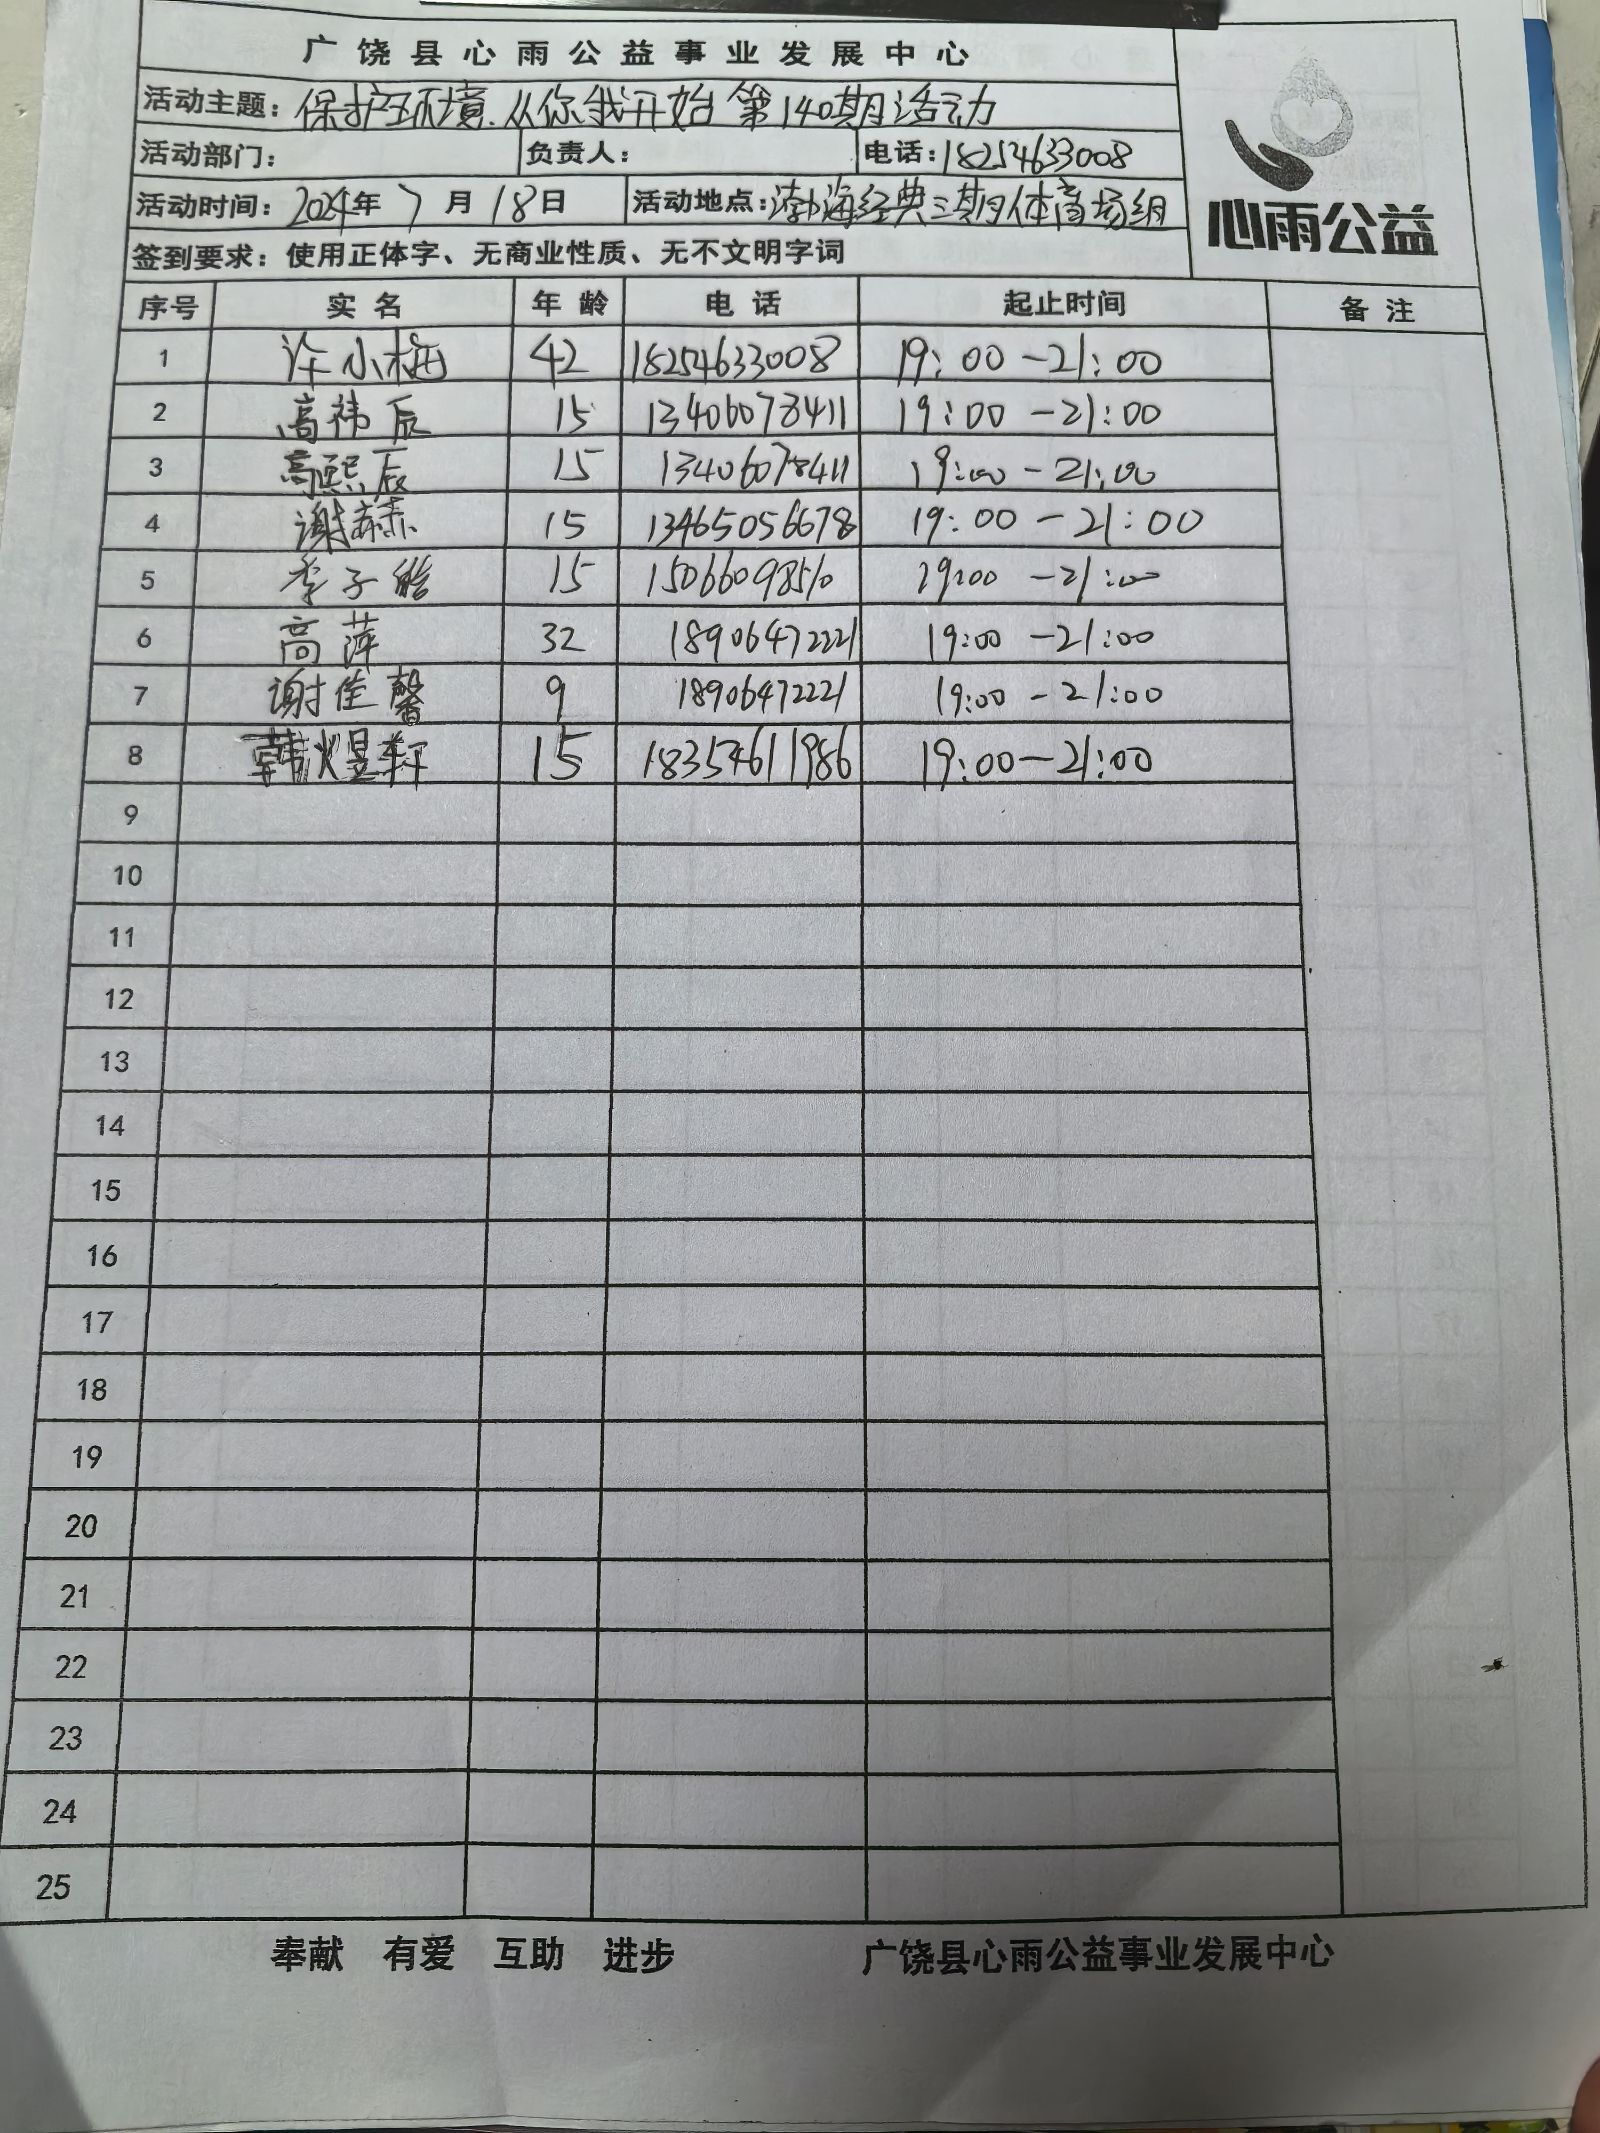 广饶县心雨公益事业发展中心
活动主题：保护环境.从你我开始 第140期活动
活动部门： 负责人： 电话：18254633008
活动时间：2024年7月18日 活动地点：渤海经典三期体育场组
心雨公益
签到要求：使用正体字、无商业性质、无不文明字词
序号 实名 年龄 电话 起止时间 备注
1 许小梅 42 18254633008 19:00-21:00
2 高祎辰 15 13406078411 19:00-21:00
3 高熙辰 15 13406078411 19:00-21:00
4 谢 15 13465056678 19:00-21:00
5 李子皓 15 15066098510 19:00-21:00
6 高萍 32 18906472221 19:00-21:00
7 谢佳馨 9 18906472221 19:00-21:00
8 韩煜轩 15 18354611986 19:00-21:00
9
10
11
12
13
14
15
16
17
18
19
20
21
22
23
24
25
奉献 有爱 互助 进步 广饶县心雨公益事业发展中心